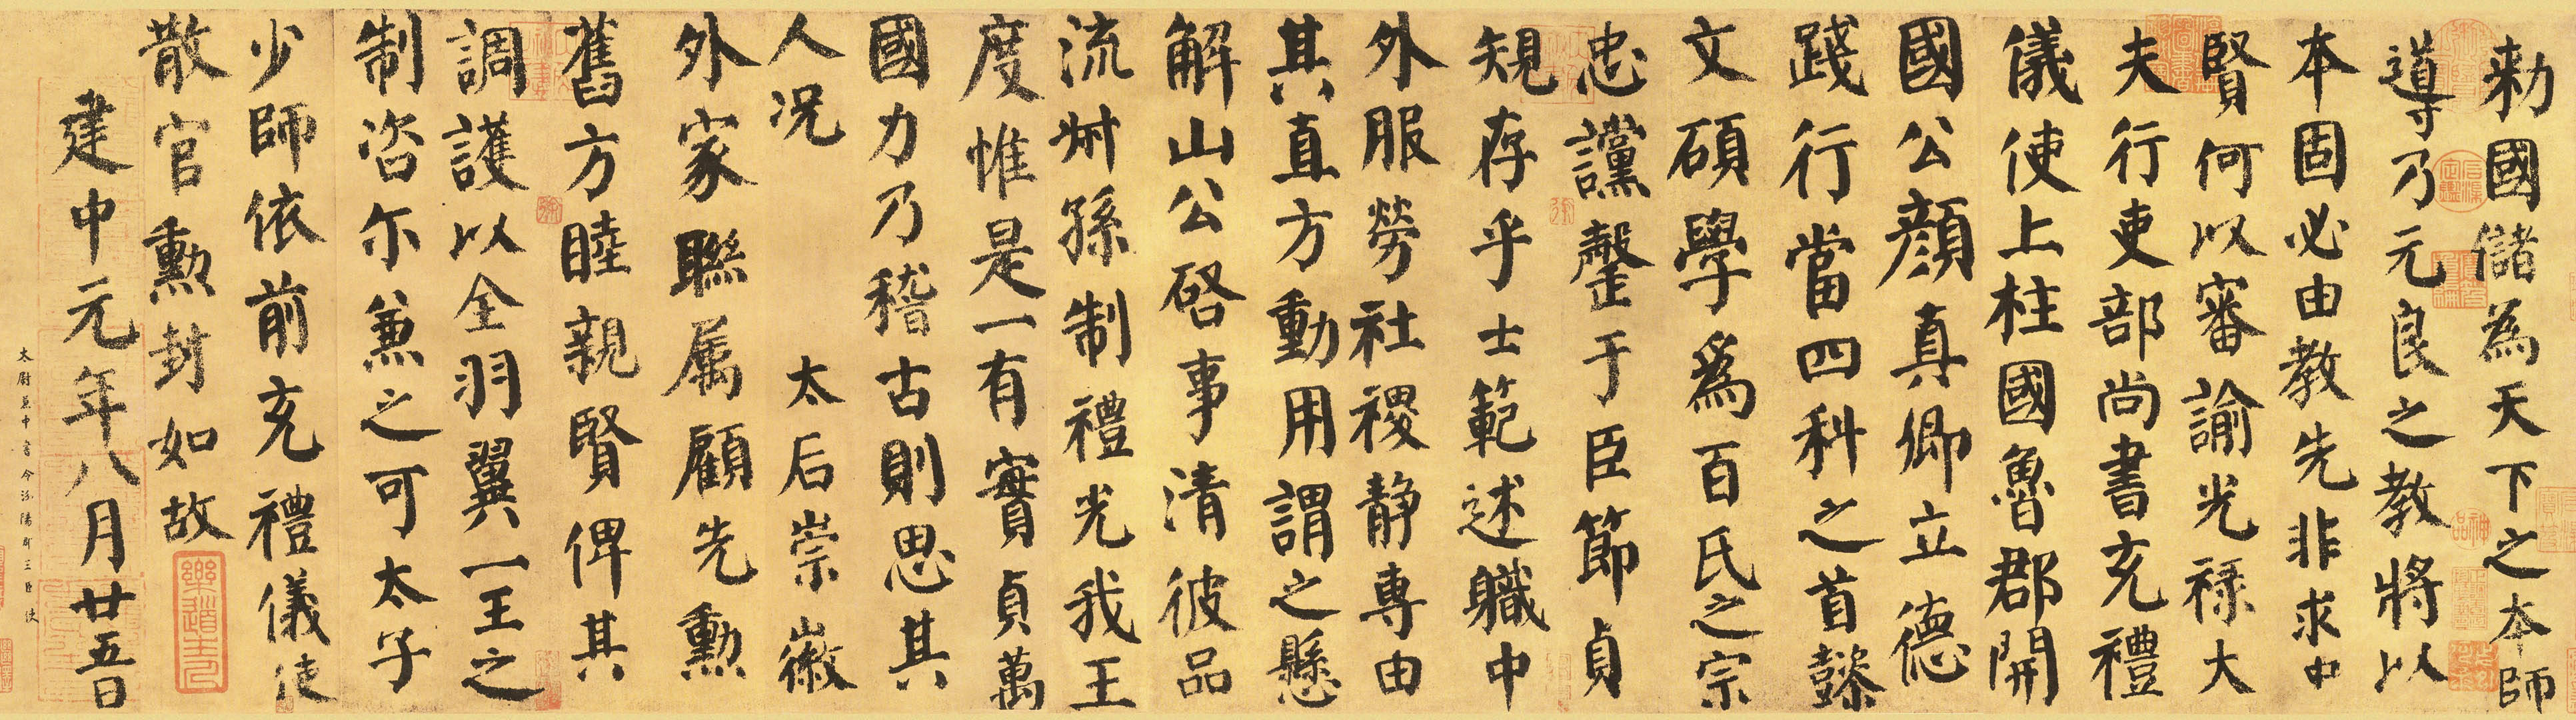 勑國儲為天下之本師
導乃元良之教將以
本固必由教先非求中
賢何以審諭光祿大
夫行吏部尚書充禮
儀使上柱國魯郡開
國公顏真卿立德
踐行當四科之首懿
文碩學爲百氏之宗
忠讜罄于臣節貞
規存乎士範述職中
外服勞社稷静專由
其直方動用謂之懸
解山公啓事清彼品
流叔孫制禮光我王
度惟是一有實貞萬
國力乃稽古則思其
人況 太后崇徽
外家聯属顧先勲
舊方睦親賢俾其
調護以全羽翼一王之
制咨尔兼之可太子
少師依前充禮儀使
散官勲封如故
建中元年八月廿五日
太尉兼中書令汾陽郡王臣 使